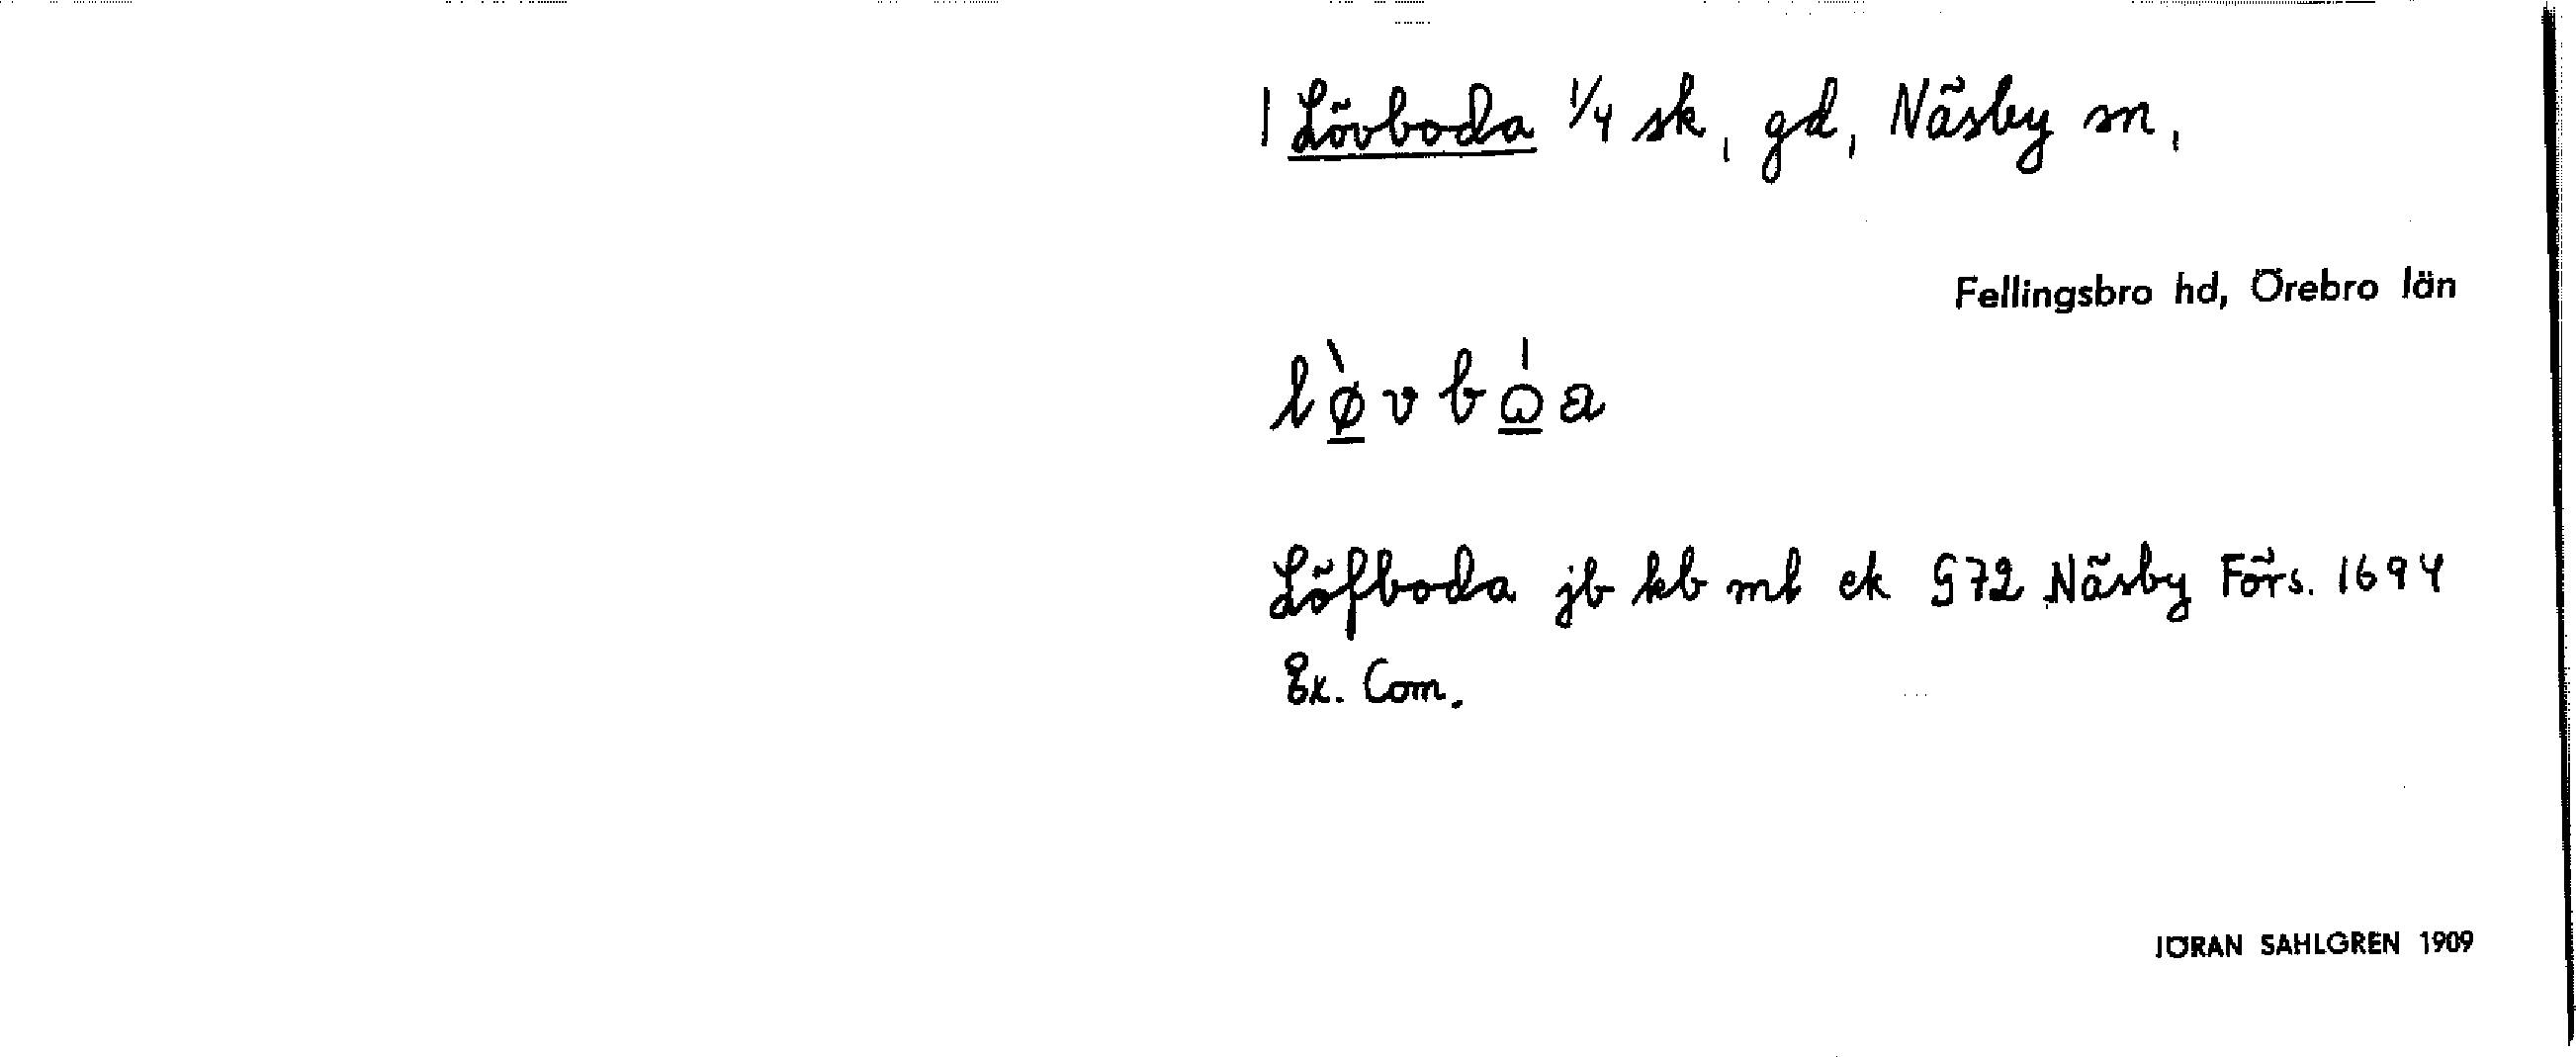 | Lövboda 1/4 sk, gd, Näsby sn,
Fellingsbro hd, Örebro län
lø̀vbω̍a
Löfboda jb kb ml ek G72 Näsby Förs. 1694
Ex. Com.
JÖRAN SAHLGREN 1909